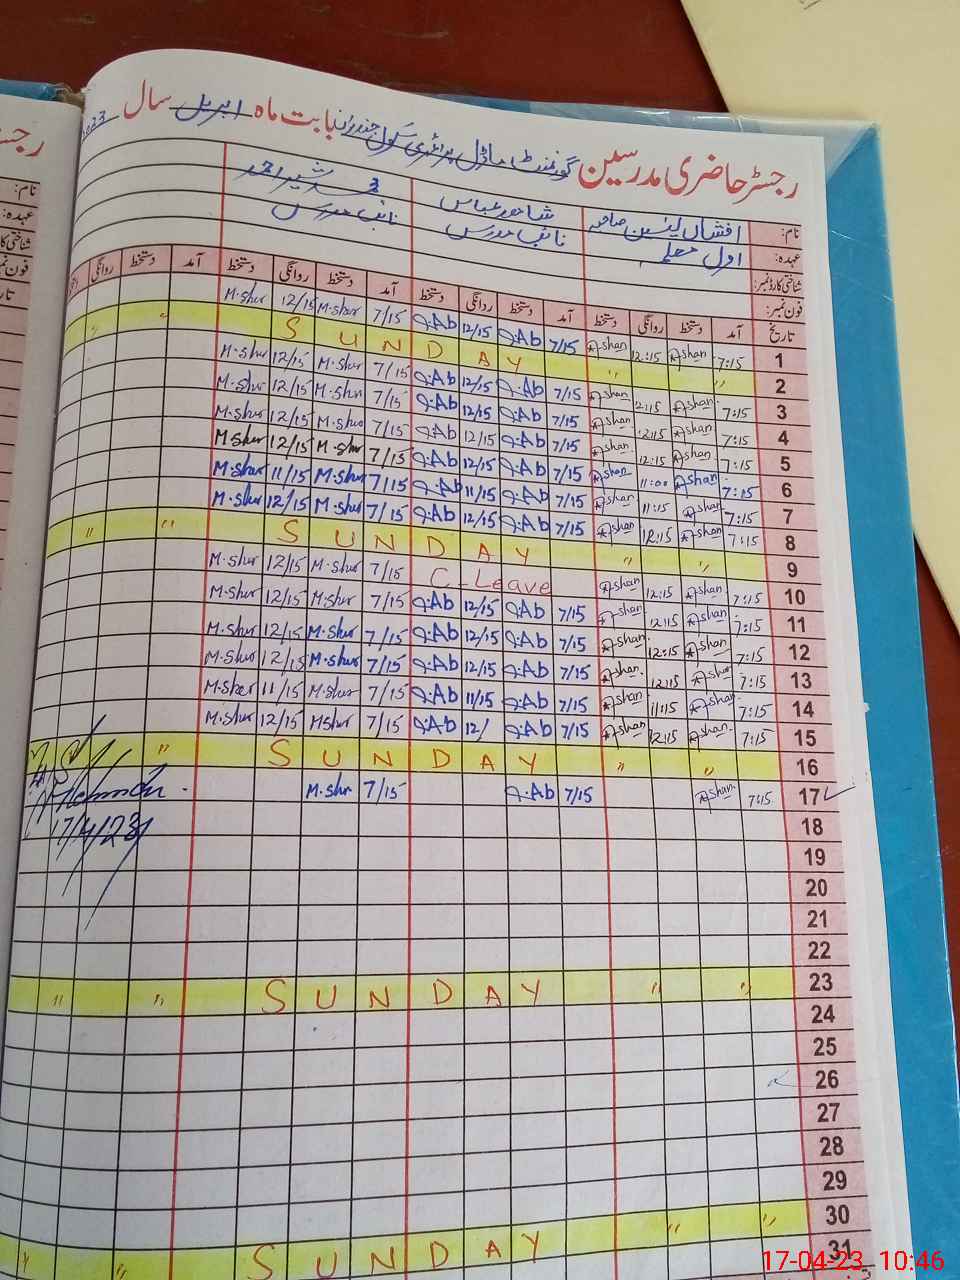 رجسٹر حاضری مدرسین گورنمنٹ ماڈل پرائمری سکول بابت ماہ اپریل سال 2023
نام: افشاں صاحبہ شاہد عباس
عہدہ: اول معلم نائب مدرس نائب مدرس
شناختی کارڈ نمبر:
فون نمبر:
تاریخ آمد دستخط روانگی دستخط آمد دستخط روانگی دستخط آمد دستخط روانگی دستخط آمد دستخط روانگی
M.sher 12/15 M.sher 7/15 J.Ab 12/15 J.Ab 7/15 Ashan 12:15 Ashan 7:15 1
" " SUNDAY " " 2
M.sher 12/15 M.sher 7/15 J.Ab 12/15 J.Ab 7/15 Ashan 12:15 Ashan 7:15 3
M.sher 12/15 M.sher 7/15 J.Ab 12/15 J.Ab 7/15 Ashan 12:15 Ashan 7:15 4
M.sher 12/15 M.sher 7/15 J.Ab 12/15 J.Ab 7/15 Ashan 12:15 Ashan 7:15 5
M.sher 12/15 M.sher 7/15 J.Ab 12/15 J.Ab 7/15 Ashan 11:00 Ashan 7:15 6
M.sher 11/15 M.sher 7/15 J.Ab 11/15 J.Ab 7/15 Ashan 11:15 Ashan 7:15 7
M.sher 12/15 M.sher 7/15 J.Ab 12/15 J.Ab 7/15 Ashan 12:15 Ashan 7:15 8
" " SUNDAY " " 9
M.sher 12/15 M.sher 7/15 C-Leave Ashan 12:15 Ashan 7:15 10
M.sher 12/15 M.sher 7/15 J.Ab 12/15 J.Ab 7/15 Ashan 12:15 Ashan 7:15 11
M.sher 12/15 M.sher 7/15 J.Ab 12/15 J.Ab 7/15 Ashan 12:15 Ashan 7:15 12
M.sher 12/15 M.sher 7/15 J.Ab 12/15 J.Ab 7/15 Ashan 12:15 Ashan 7:15 13
M.sher 11/15 M.sher 7/15 J.Ab 11/15 J.Ab 7/15 Ashan 11:15 Ashan 7:15 14
M.sher 12/15 M.sher 7/15 J.Ab 12/ J.Ab 7/15 Ashan 12:15 Ashan 7:15 15
" SUNDAY " " 16
M.sher 7/15 J.Ab 7/15 Ashan 7:15 17
17/4/23
18
19
20
21
22
" " SUNDAY " " 23
24
25
26
27
28
29
" " 30
" " SUNDAY 31
17-04-23 10:46